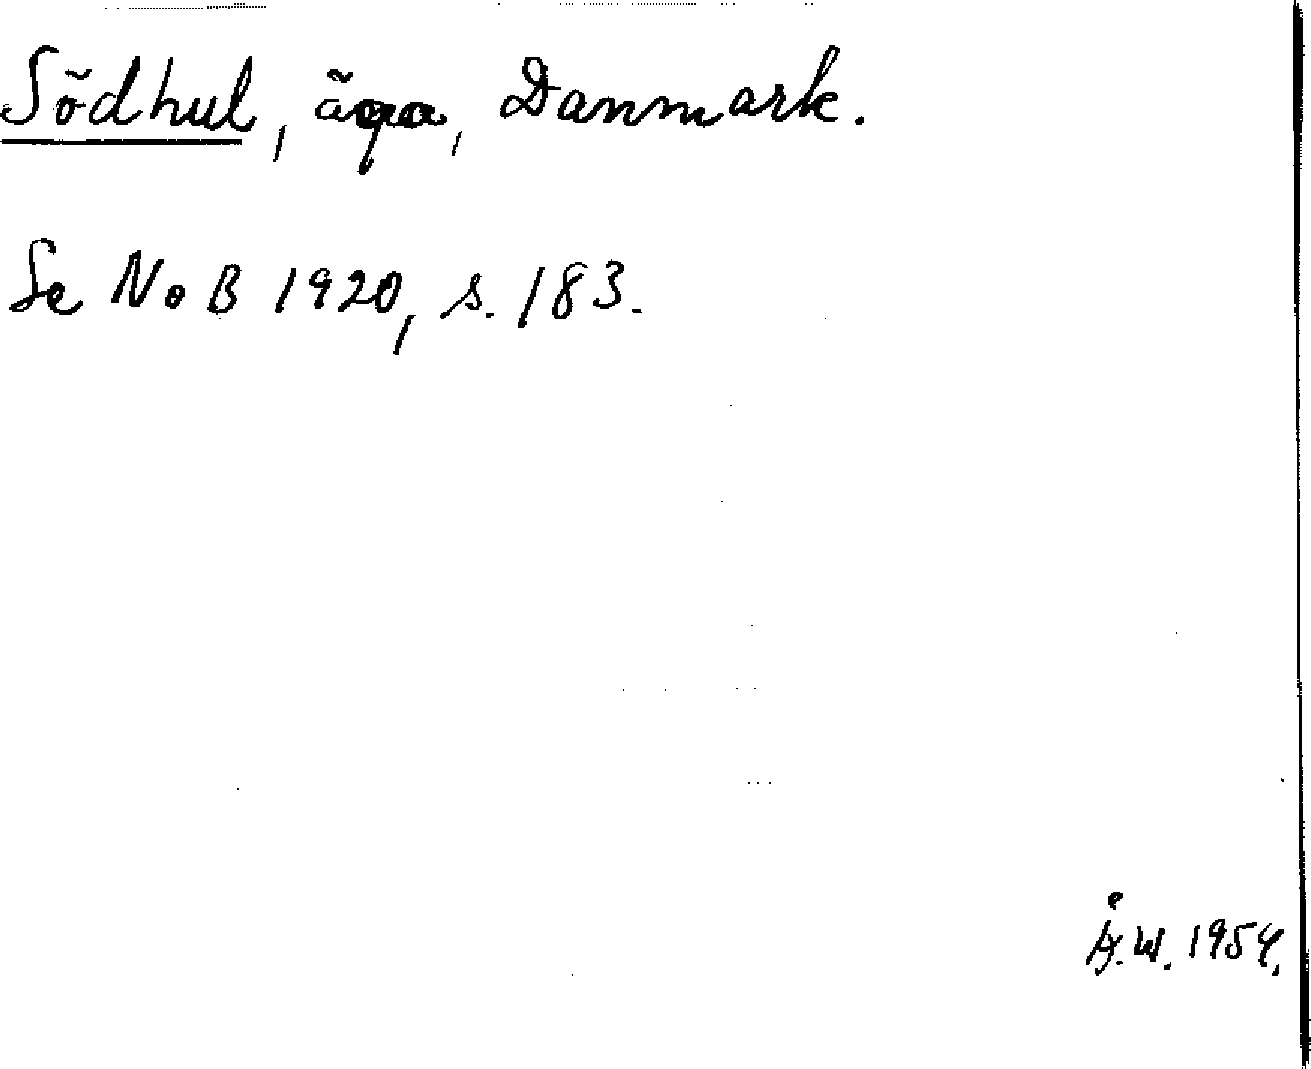 Södhul, äga, Danmark.
Se NoB 1920, s. 183.
Å.W. 1954.